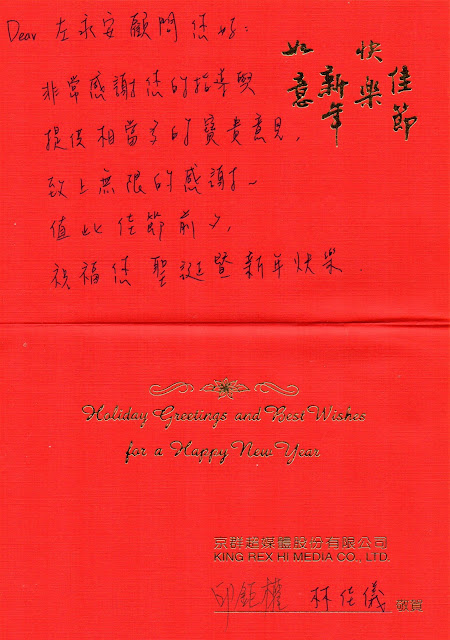 Dear 左永安顧問您好:
佳節
快樂
新年
如意
非常感謝您的指導與
提供相當多的寶貴意見,
致上無限的感謝~
值此佳節前夕,
祝福您聖誕暨新年快樂.
Holiday Greetings and Best Wishes
for a Happy New Year
京群超媒體股份有限公司
KING REX HI MEDIA CO., LTD.
邱鉅權 林佳儀 敬賀